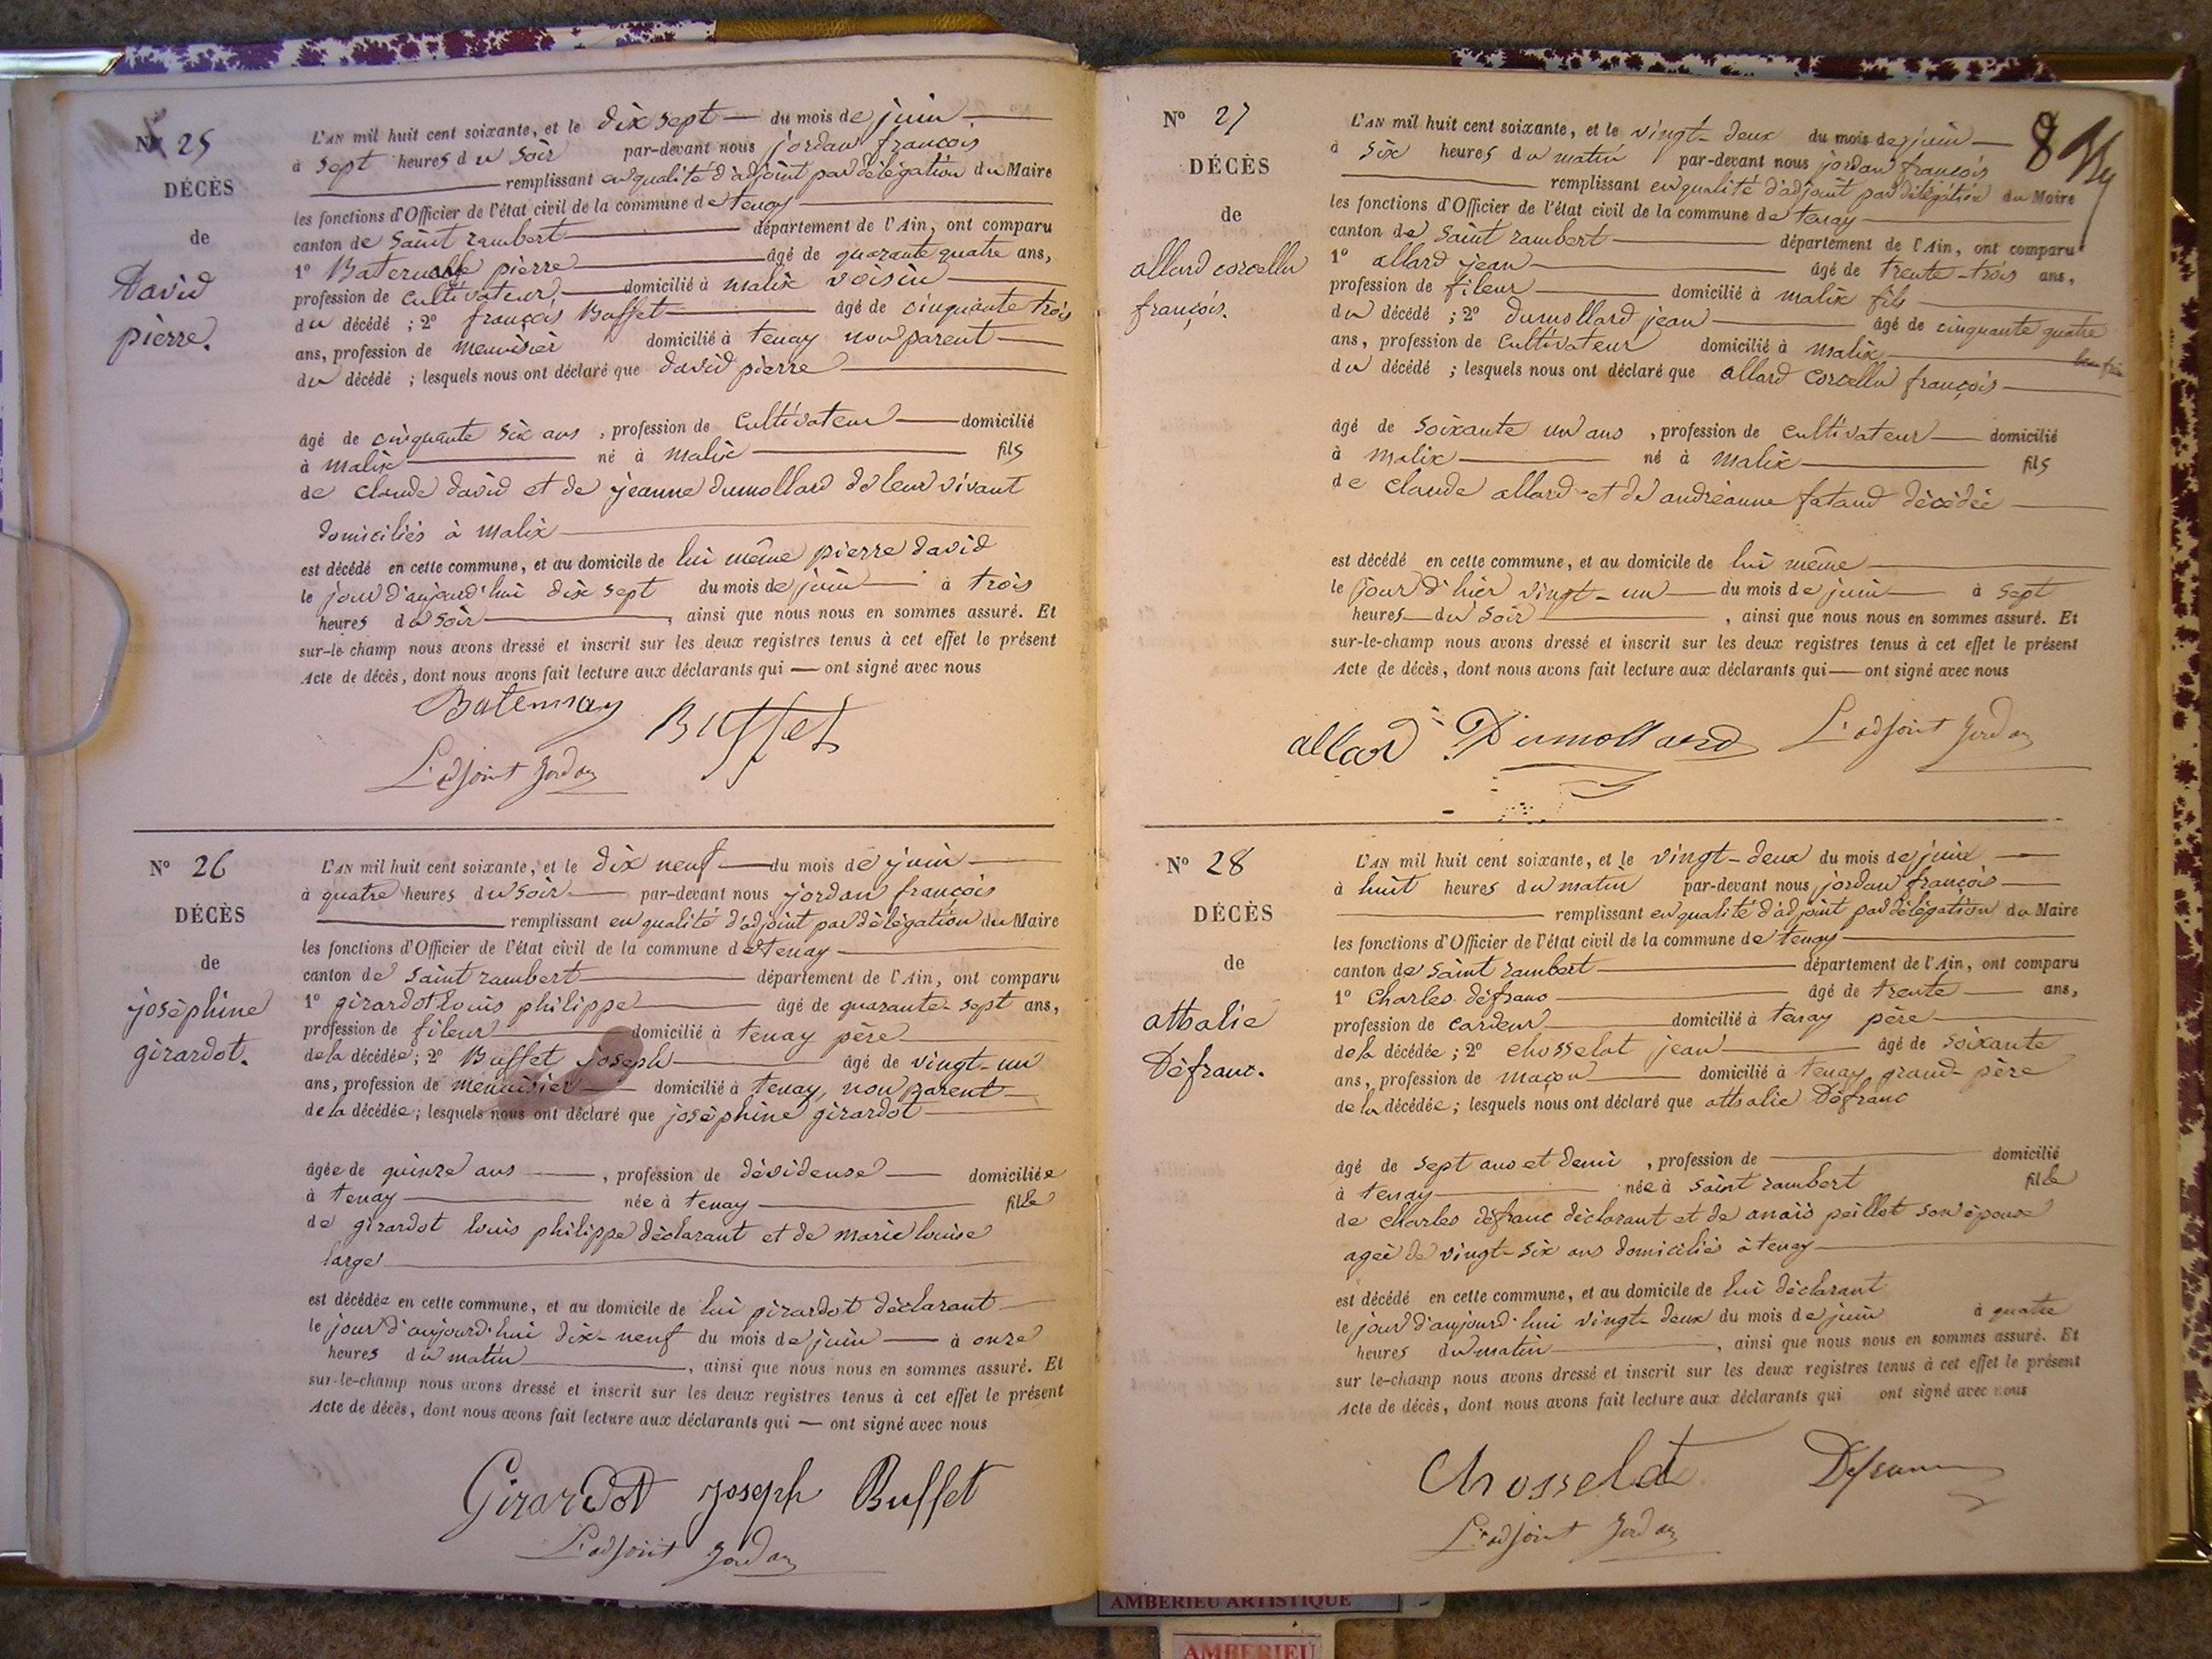 N° 25
DÉCÈS
de
David
pierre.
L'AN mil huit cent soixante, et le dix sept — du mois de juin
à sept heures du soir par-devant nous jordan françois
remplissant en qualité d'adjoint par délégation du Maire
les fonctions d'Officier de l'état civil de la commune de tenay
canton de saint rambert département de l'Ain, ont comparu
1° pierre âgé de quarante quatre ans,
profession de cultivateur, domicilié à malix voisin
du décédé ; 2° françois Buffet âgé de cinquante trois
ans, profession de menuisier domicilié à tenay non parent
du décédé ; lesquels nous ont déclaré que david pierre
âgé de cinquante six ans , profession de cultivateur domicilié
à malix né à malix fils
de claude david et de jeanne dumollard de leur vivant
domiciliés à malix
est décédé en cette commune, et au domicile de lui même pierre david
le jour d'aujourd'hui dix sept du mois de juin à trois
heures du soir , ainsi que nous nous en sommes assuré. Et
sur-le champ nous avons dressé et inscrit sur les deux registres tenus à cet effet le présent
Acte de décès, dont nous avons fait lecture aux déclarants qui — ont signé avec nous
Buffet
L'adjoint Jordan
N° 26
DÉCÈS
de
joséphine
girardot.
L'AN mil huit cent soixante, et le dix neuf — du mois de juin
à quatre heures du soir par-devant nous jordan françois
remplissant en qualité d'adjoint par délégation du Maire
les fonctions d'Officier de l'état civil de la commune de tenay
canton de saint rambert département de l'Ain, ont comparu
1° girardot louis philippe âgé de quarante-sept ans,
profession de fileur domicilié à tenay père
de la décédée; 2° Buffet joseph âgé de vingt-un
ans, profession de menuisier domicilié à tenay, non parent
de la décédée; lesquels nous ont déclaré que joséphine girardot
âgée de quinze ans , profession de dévideuse domiciliée
à tenay née à tenay fille
de girardot louis philippe déclarant et de marie louise
large
est décédée en cette commune, et au domicile de lui girardot déclarant
le jour d'aujourd'hui dix-neuf du mois de juin à onze
heures du matin , ainsi que nous nous en sommes assuré. Et
sur-le-champ nous avons dressé et inscrit sur les deux registres tenus à cet effet le présent
Acte de décès, dont nous avons fait lecture aux déclarants qui — ont signé avec nous
Girardot joseph Buffet
L'adjoint Jordan
8
N° 27
DÉCÈS
de
allard corcellu
françois.
L'AN mil huit cent soixante, et le vingt-deux du mois de juin
à six heures du matin par-devant nous jordan françois
remplissant en qualité d'adjoint par délégation du Maire
les fonctions d'Officier de l'état civil de la commune de tenay
canton de saint rambert département de l'Ain, ont comparu
1° allard jean âgé de trente-trois ans,
profession de fileur domicilié à malix fils
du décédé ; 2° dumollard jean âgé de cinquante quatre
ans, profession de cultivateur domicilié à malix beau frère
du décédé ; lesquels nous ont déclaré que allard corcellu françois
âgé de soixante un ans , profession de cultivateur domicilié
à malix né à malix fils
de claude allard et de andréanne décédée
est décédé en cette commune, et au domicile de lui même
le jour d'hier vingt-un du mois de juin à sept
heures du soir , ainsi que nous nous en sommes assuré. Et
sur-le-champ nous avons dressé et inscrit sur les deux registres tenus à cet effet le présent
Acte de décès, dont nous avons fait lecture aux déclarants qui — ont signé avec nous
allard Dumollard L'adjoint Jordan
N° 28
DÉCÈS
de
athalie
Défranc.
L'AN mil huit cent soixante, et le vingt-deux du mois de juin
à huit heures du matin par-devant nous jordan françois
remplissant en qualité d'adjoint par délégation du Maire
les fonctions d'Officier de l'état civil de la commune de tenay
canton de saint rambert département de l'Ain, ont comparu
1° Charles défranc âgé de trente ans,
profession de cardeur domicilié à tenay père
de la décédée ; 2° chosselat jean âgé de soixante
ans, profession de maçon domicilié à tenay grand-père
de la décédée ; lesquels nous ont déclaré que athalie Défranc
âgé de sept ans et demi , profession de domicilié
à tenay née à saint rambert fille
de charles défranc déclarant et de anaïs peillot son épouse
agée de vingt-six ans domiciliés à tenay
est décédé en cette commune, et au domicile de lui déclarant
le jour d'aujourd'hui vingt-deux du mois de juin à quatre
heures du matin , ainsi que nous nous en sommes assuré. Et
sur le-champ nous avons dressé et inscrit sur les deux registres tenus à cet effet le présent
Acte de décès, dont nous avons fait lecture aux déclarants qui ont signé avec nous
Chosselat Defranc
L'adjoint Jordan
AMBERIEU ARTISTIQUE
AMBERIEU